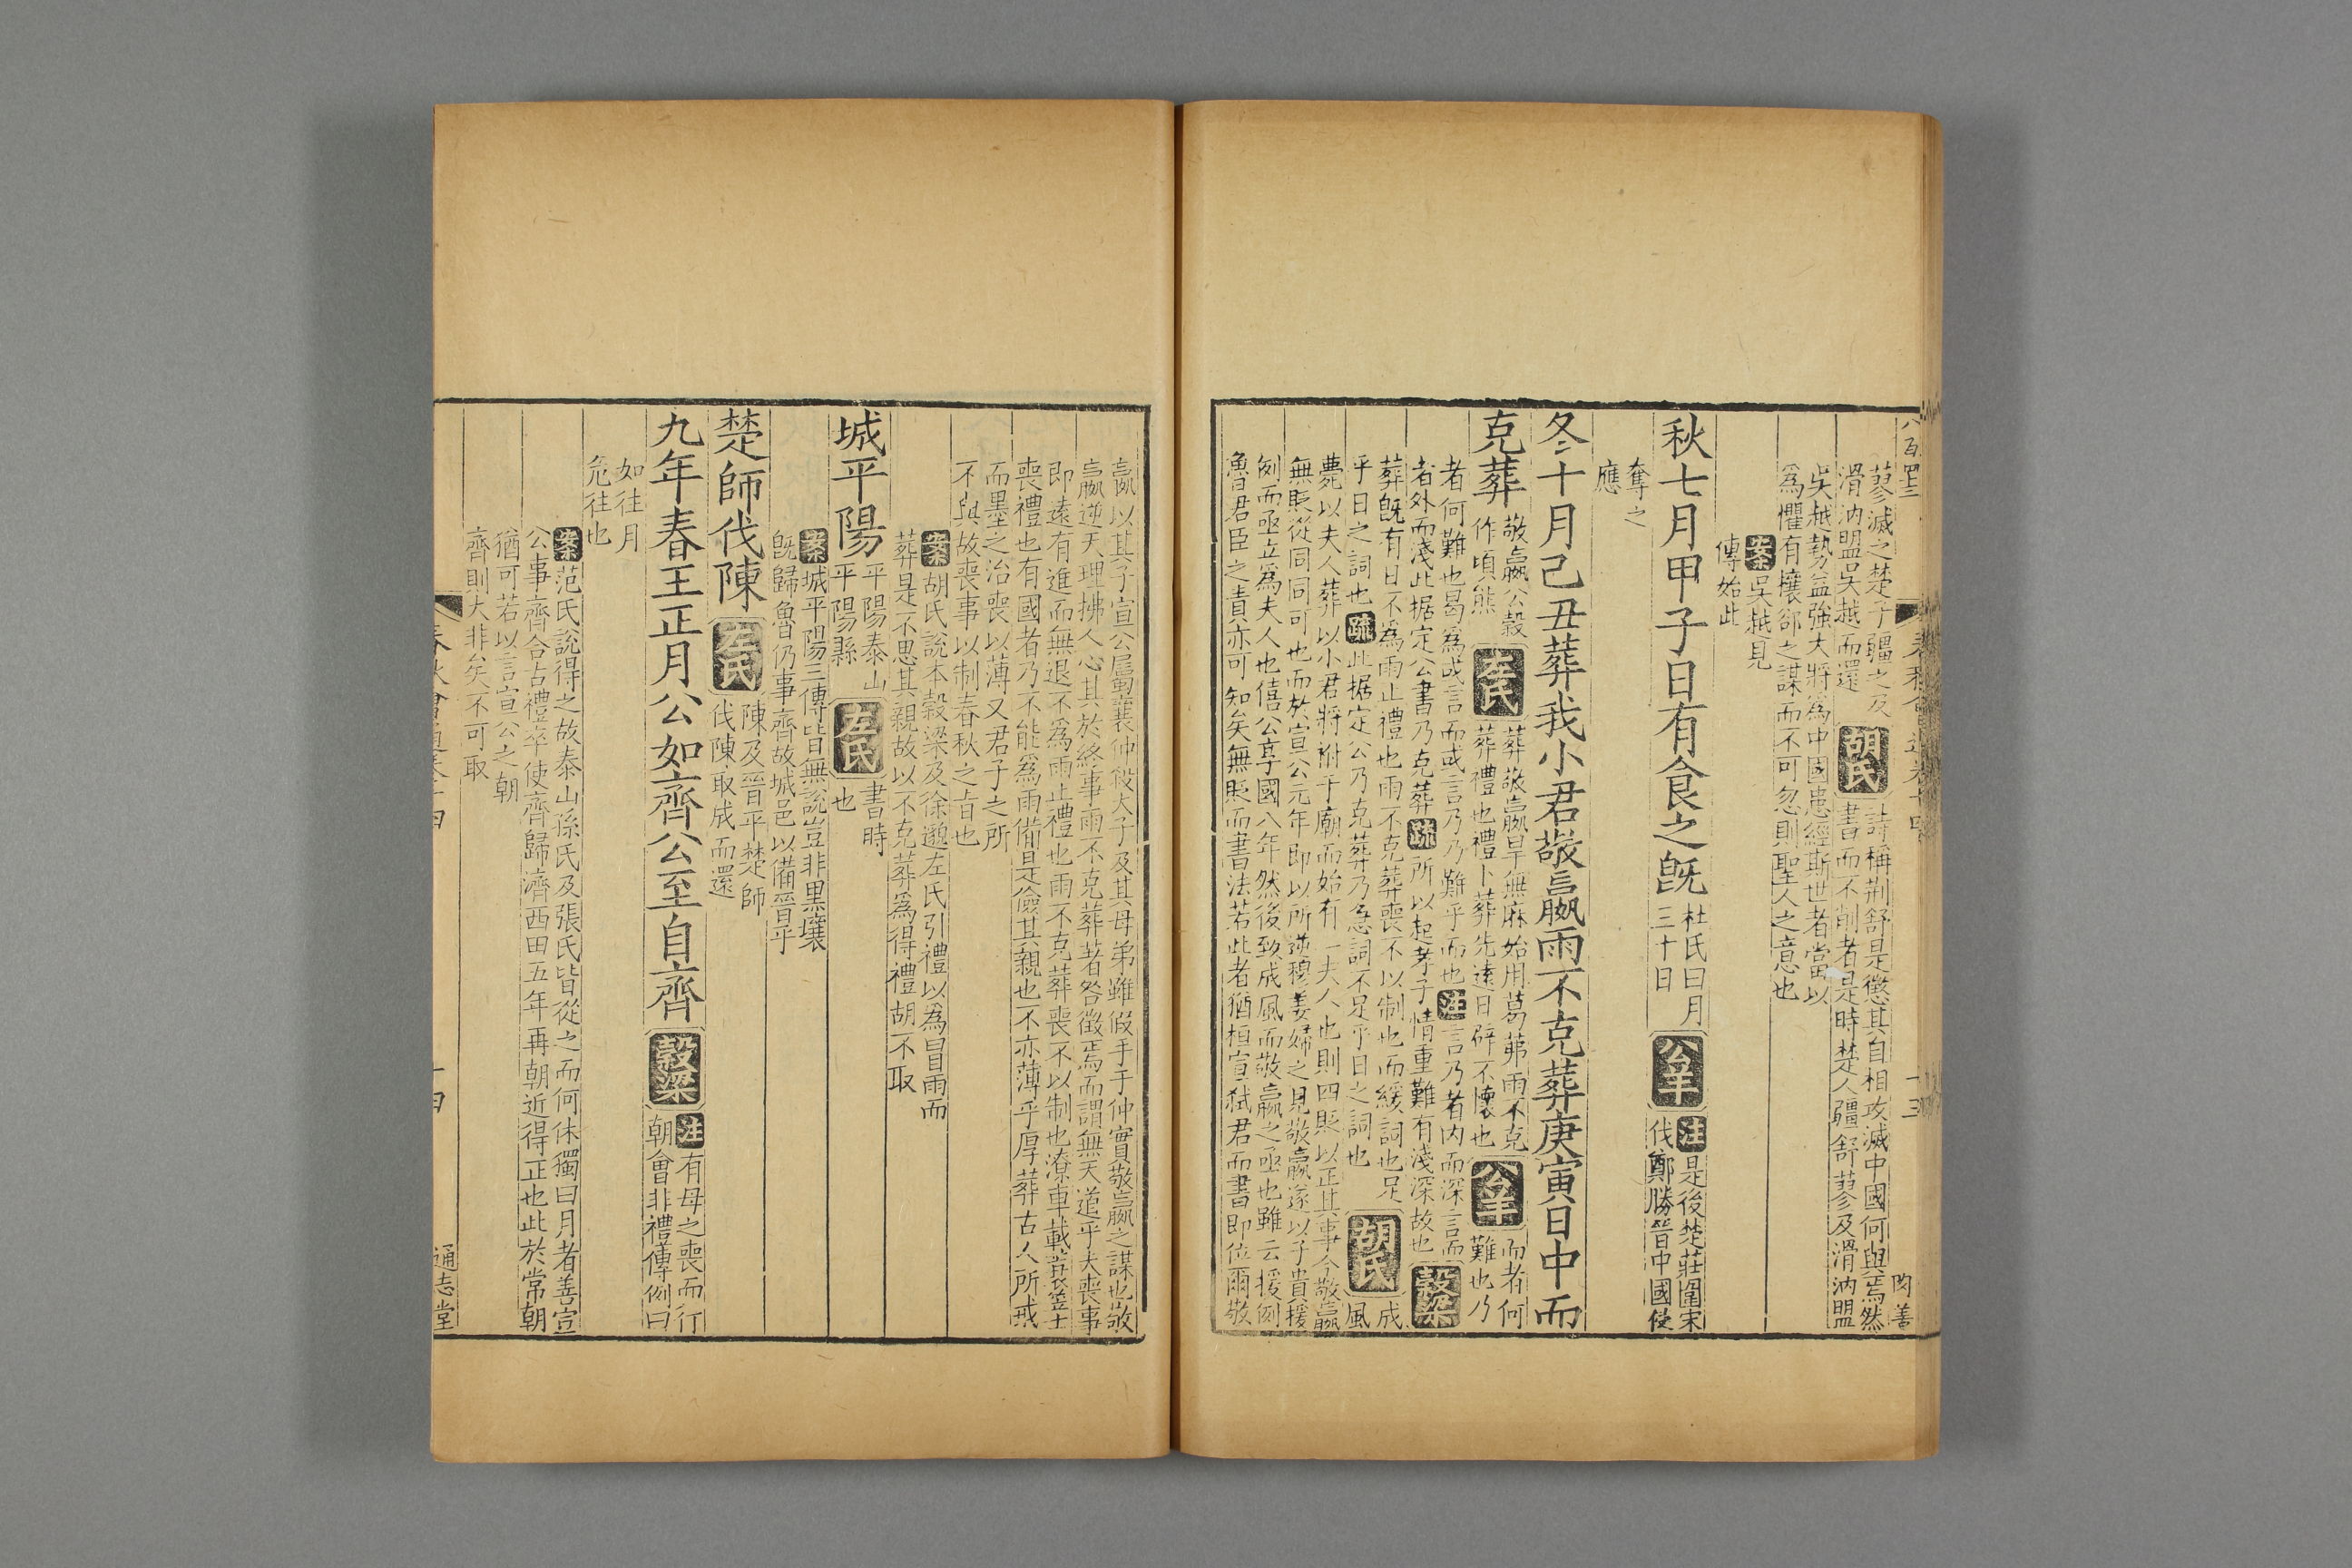 蓼滅之楚子疆之及
滑汭盟吳越而還
胡氏
詩稱荆舒是懲其自相攻滅中國何與焉然
書而不削者是時楚人疆舒蓼及滑汭盟
吳越勢益強大將為中國患經斯世者當以
為懼有攘郤之謀而不可忽則聖人之意也
案吳越見
傳始此
秋七月甲子日有食之旣
杜氏曰月
三十日
公羊
注是後楚莊圍宋
伐鄭勝晉中國使
奪之
應
冬十月己丑葬我小君敬嬴雨不克葬庚寅日中而
克葬
敬嬴公穀
作頃熊
左氏
葬敬嬴旱無麻始用葛茀雨不克
葬禮也禮卜葬先遠日辟不懷也
公羊
而者何
難也乃
者何難也曷為或言而或言乃乃難乎而也注言乃者内而深言而
者外而淺此据定公書乃克葬疏所以起孝子情重難有淺深故也
穀梁
葬旣有日不為雨止禮也雨不克葬喪不以制也而緩詞也足
乎日之詞也疏此据定公乃克葬乃急詞不足乎日之詞也
胡氏
成
風
薨以夫人葬以小君將祔于廟而始有二夫人也則四貶以正其事今敬嬴
無貶從同同可也而於宣公元年即以所逆穆姜婦之見敬嬴遂以子貴援
例而亟立為夫人也僖公享國八年然後致成風而敬嬴之亟也雖云援例
魯君臣之責亦可知矣無貶而書法若此者猶桓宣弑君而書即位爾敬
嬴以其子宣公屬襄仲殺大子及其母弟雖假手于仲實敬嬴之謀也敬
嬴逆天理拂人心其於終事雨不克葬著咎徵焉而謂無天道乎夫喪事
即遠有進而無退不為雨止禮也雨不克葬喪不以制也潦車載蓑笠士
喪禮也有國者乃不能為雨備是儉其親也不亦薄乎厚葬古人所戒
而墨之治喪以薄又君子之所
不與故喪事以制春秋之旨也
案胡氏說本穀梁及徐邈左氏引禮以為冒雨而
葬是不思其親故以不克葬為得禮胡不取
城平陽
平陽泰山
平陽縣
左氏
書時
也
案城平陽三傳皆無說豈非黒壤
旣歸魯仍事齊故城邑以備晉乎
楚師伐陳
左氏
陳及晉平楚師
伐陳取成而還
九年春王正月公如齊公至自齊
穀梁
注有母之喪而行
朝會非禮傳例曰
如往月
危往也
案范氏說得之故泰山孫氏及張氏皆從之而何休獨曰月者善宣
公事齊合古禮卒使齊歸濟西田五年再朝近得正也此於常朝
猶可若以言宣公之朝
齊則大非矣不可取
通志堂